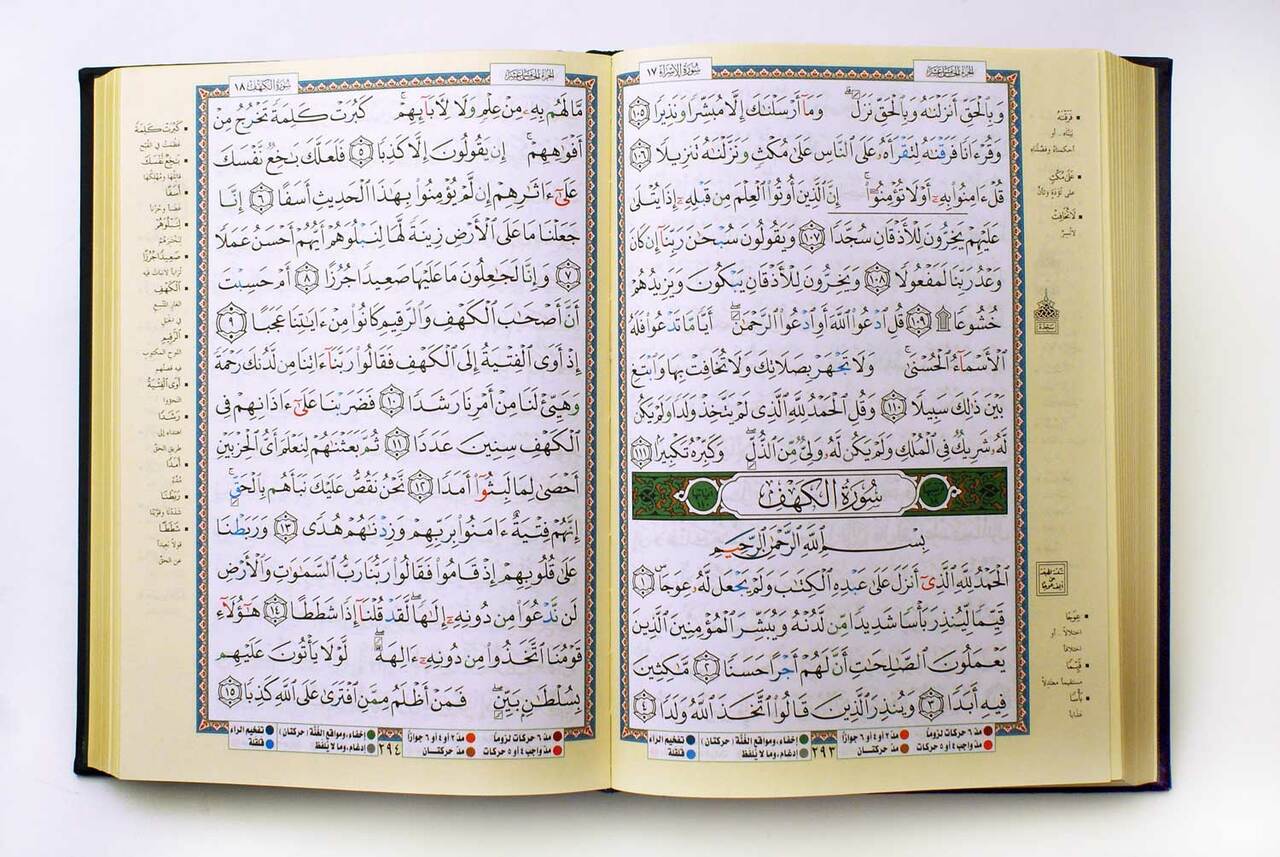 سُورَةُ الإِسْرَاء ١٧
الجُزْءُ الخَامِسَ عَشَرَ
وَبِالْحَقِّ أَنزَلْنَٰهُ وَبِالْحَقِّ نَزَلَ ۗ وَمَآ أَرْسَلْنَٰكَ إِلَّا مُبَشِّرًا وَنَذِيرًا ١٠٥
وَقُرْءَانًا فَرَقْنَٰهُ لِتَقْرَأَهُۥ عَلَى النَّاسِ عَلَىٰ مُكْثٍ وَنَزَّلْنَٰهُ تَنزِيلًا ١٠٦
قُلْ ءَامِنُوا۟ بِهِۦٓ أَوْ لَا تُؤْمِنُوٓا۟ ۚ إِنَّ الَّذِينَ أُوتُوا۟ الْعِلْمَ مِن قَبْلِهِۦٓ إِذَا يُتْلَىٰ
عَلَيْهِمْ يَخِرُّونَ لِلْأَذْقَانِ سُجَّدًا ١٠٧ وَيَقُولُونَ سُبْحَٰنَ رَبِّنَآ إِن كَانَ
وَعْدُ رَبِّنَا لَمَفْعُولًا ١٠٨ وَيَخِرُّونَ لِلْأَذْقَانِ يَبْكُونَ وَيَزِيدُهُمْ
خُشُوعًا ۩ ١٠٩ قُلِ ادْعُوا۟ اللَّهَ أَوِ ادْعُوا۟ الرَّحْمَٰنَ ۖ أَيًّا مَّا تَدْعُوا۟ فَلَهُ
الْأَسْمَآءُ الْحُسْنَىٰ ۚ وَلَا تَجْهَرْ بِصَلَاتِكَ وَلَا تُخَافِتْ بِهَا وَابْتَغِ
بَيْنَ ذَٰلِكَ سَبِيلًا ١١٠ وَقُلِ الْحَمْدُ لِلَّهِ الَّذِى لَمْ يَتَّخِذْ وَلَدًا وَلَمْ يَكُن
لَّهُۥ شَرِيكٌ فِى الْمُلْكِ وَلَمْ يَكُن لَّهُۥ وَلِىٌّ مِّنَ الذُّلِّ ۖ وَكَبِّرْهُ تَكْبِيرًۢا ١١١
سُورَةُ الْكَهْفِ
بِسْمِ اللَّهِ الرَّحْمَٰنِ الرَّحِيمِ
الْحَمْدُ لِلَّهِ الَّذِىٓ أَنزَلَ عَلَىٰ عَبْدِهِ الْكِتَٰبَ وَلَمْ يَجْعَل لَّهُۥ عِوَجَا ۜ ١
قَيِّمًا لِّيُنذِرَ بَأْسًا شَدِيدًا مِّن لَّدُنْهُ وَيُبَشِّرَ الْمُؤْمِنِينَ الَّذِينَ
يَعْمَلُونَ الصَّٰلِحَٰتِ أَنَّ لَهُمْ أَجْرًا حَسَنًا ٢ مَّٰكِثِينَ
فِيهِ أَبَدًا ٣ وَيُنذِرَ الَّذِينَ قَالُوا۟ اتَّخَذَ اللَّهُ وَلَدًا ٤
فَرَقْنَٰهُ
بيّناه.. أو
أحكمناه وفصّلناه
عَلَىٰ مُكْثٍ
على تُؤَدَةٍ وتأنٍّ
لَا تُخَافِتْ
لا تُسِرَّ
سَجْدَة
عِوَجًا
اختلالاً.. أو
اختلافاً
قَيِّمًا
مستقيماً معتدلاً
بَأْسًا
عَذَاباً
مدّ ٦ حركات لزوماً
مدّ ٢ أو ٤ أو ٦ جوازاً
إخفاء، ومواقع الغُنَّة (حركتان)
تفخيم الراء
مدّ واجب ٤ أو ٥ حركات
مدّ حركتان
٢٩٣
إدغام، وما لا يُلفَظ
قلقلة
سُورَةُ الْكَهْفِ ١٨
الجُزْءُ الخَامِسَ عَشَرَ
مَّا لَهُم بِهِۦ مِنْ عِلْمٍ وَلَا لِءَابَآئِهِمْ ۚ كَبُرَتْ كَلِمَةً تَخْرُجُ مِنْ
أَفْوَٰهِهِمْ ۚ إِن يَقُولُونَ إِلَّا كَذِبًا ٥ فَلَعَلَّكَ بَٰخِعٌ نَّفْسَكَ
عَلَىٰٓ ءَاثَٰرِهِمْ إِن لَّمْ يُؤْمِنُوا۟ بِهَٰذَا الْحَدِيثِ أَسَفًا ٦ إِنَّا
جَعَلْنَا مَا عَلَى الْأَرْضِ زِينَةً لَّهَا لِنَبْلُوَهُمْ أَيُّهُمْ أَحْسَنُ عَمَلًا
٧ وَإِنَّا لَجَٰعِلُونَ مَا عَلَيْهَا صَعِيدًا جُرُزًا ٨ أَمْ حَسِبْتَ
أَنَّ أَصْحَٰبَ الْكَهْفِ وَالرَّقِيمِ كَانُوا۟ مِنْ ءَايَٰتِنَا عَجَبًا ٩
إِذْ أَوَى الْفِتْيَةُ إِلَى الْكَهْفِ فَقَالُوا۟ رَبَّنَآ ءَاتِنَا مِن لَّدُنكَ رَحْمَةً
وَهَيِّئْ لَنَا مِنْ أَمْرِنَا رَشَدًا ١٠ فَضَرَبْنَا عَلَىٰٓ ءَاذَانِهِمْ فِى
الْكَهْفِ سِنِينَ عَدَدًا ١١ ثُمَّ بَعَثْنَٰهُمْ لِنَعْلَمَ أَىُّ الْحِزْبَيْنِ
أَحْصَىٰ لِمَا لَبِثُوٓا۟ أَمَدًا ١٢ نَّحْنُ نَقُصُّ عَلَيْكَ نَبَأَهُم بِالْحَقِّ ۚ
إِنَّهُمْ فِتْيَةٌ ءَامَنُوا۟ بِرَبِّهِمْ وَزِدْنَٰهُمْ هُدًى ١٣ وَرَبَطْنَا
عَلَىٰ قُلُوبِهِمْ إِذْ قَامُوا۟ فَقَالُوا۟ رَبُّنَا رَبُّ السَّمَٰوَٰتِ وَالْأَرْضِ
لَن نَّدْعُوَا۟ مِن دُونِهِۦٓ إِلَٰهًا ۖ لَّقَدْ قُلْنَآ إِذًا شَطَطًا ١٤ هَٰٓؤُلَآءِ
قَوْمُنَا اتَّخَذُوا۟ مِن دُونِهِۦٓ ءَالِهَةً ۖ لَّوْلَا يَأْتُونَ عَلَيْهِم
بِسُلْطَٰنٍۭ بَيِّنٍ ۖ فَمَنْ أَظْلَمُ مِمَّنِ افْتَرَىٰ عَلَى اللَّهِ كَذِبًا ١٥
كَبُرَتْ كَلِمَةً
عَظُمَتْ في القُبْح
بَٰخِعٌ نَّفْسَكَ
قاتِلُها ومُهلِكُها
أَسَفًا
غضباً وحُزْناً
لِنَبْلُوَهُمْ
لنختبرَهُم
صَعِيدًا جُرُزًا
تُراباً لا نبات فيه
الْكَهْفِ
الغار المتّسع
في الجبل
الرَّقِيمِ
اللوح المكتوب
أَوَى الْفِتْيَةُ
التجؤوا
رَشَدًا
اهتداء إلى
طريق الحقّ
أَمَدًا
رَبَطْنَا
شَدَدْنا وقوّينا
شَطَطًا
قولاً بعيداً
عن الحقّ
مدّ ٦ حركات لزوماً
مدّ ٢ أو ٤ أو ٦ جوازاً
إخفاء، ومواقع الغُنَّة (حركتان)
تفخيم الراء
مدّ واجب ٤ أو ٥ حركات
مدّ حركتان
٢٩٤
إدغام، وما لا يُلفَظ
قلقلة